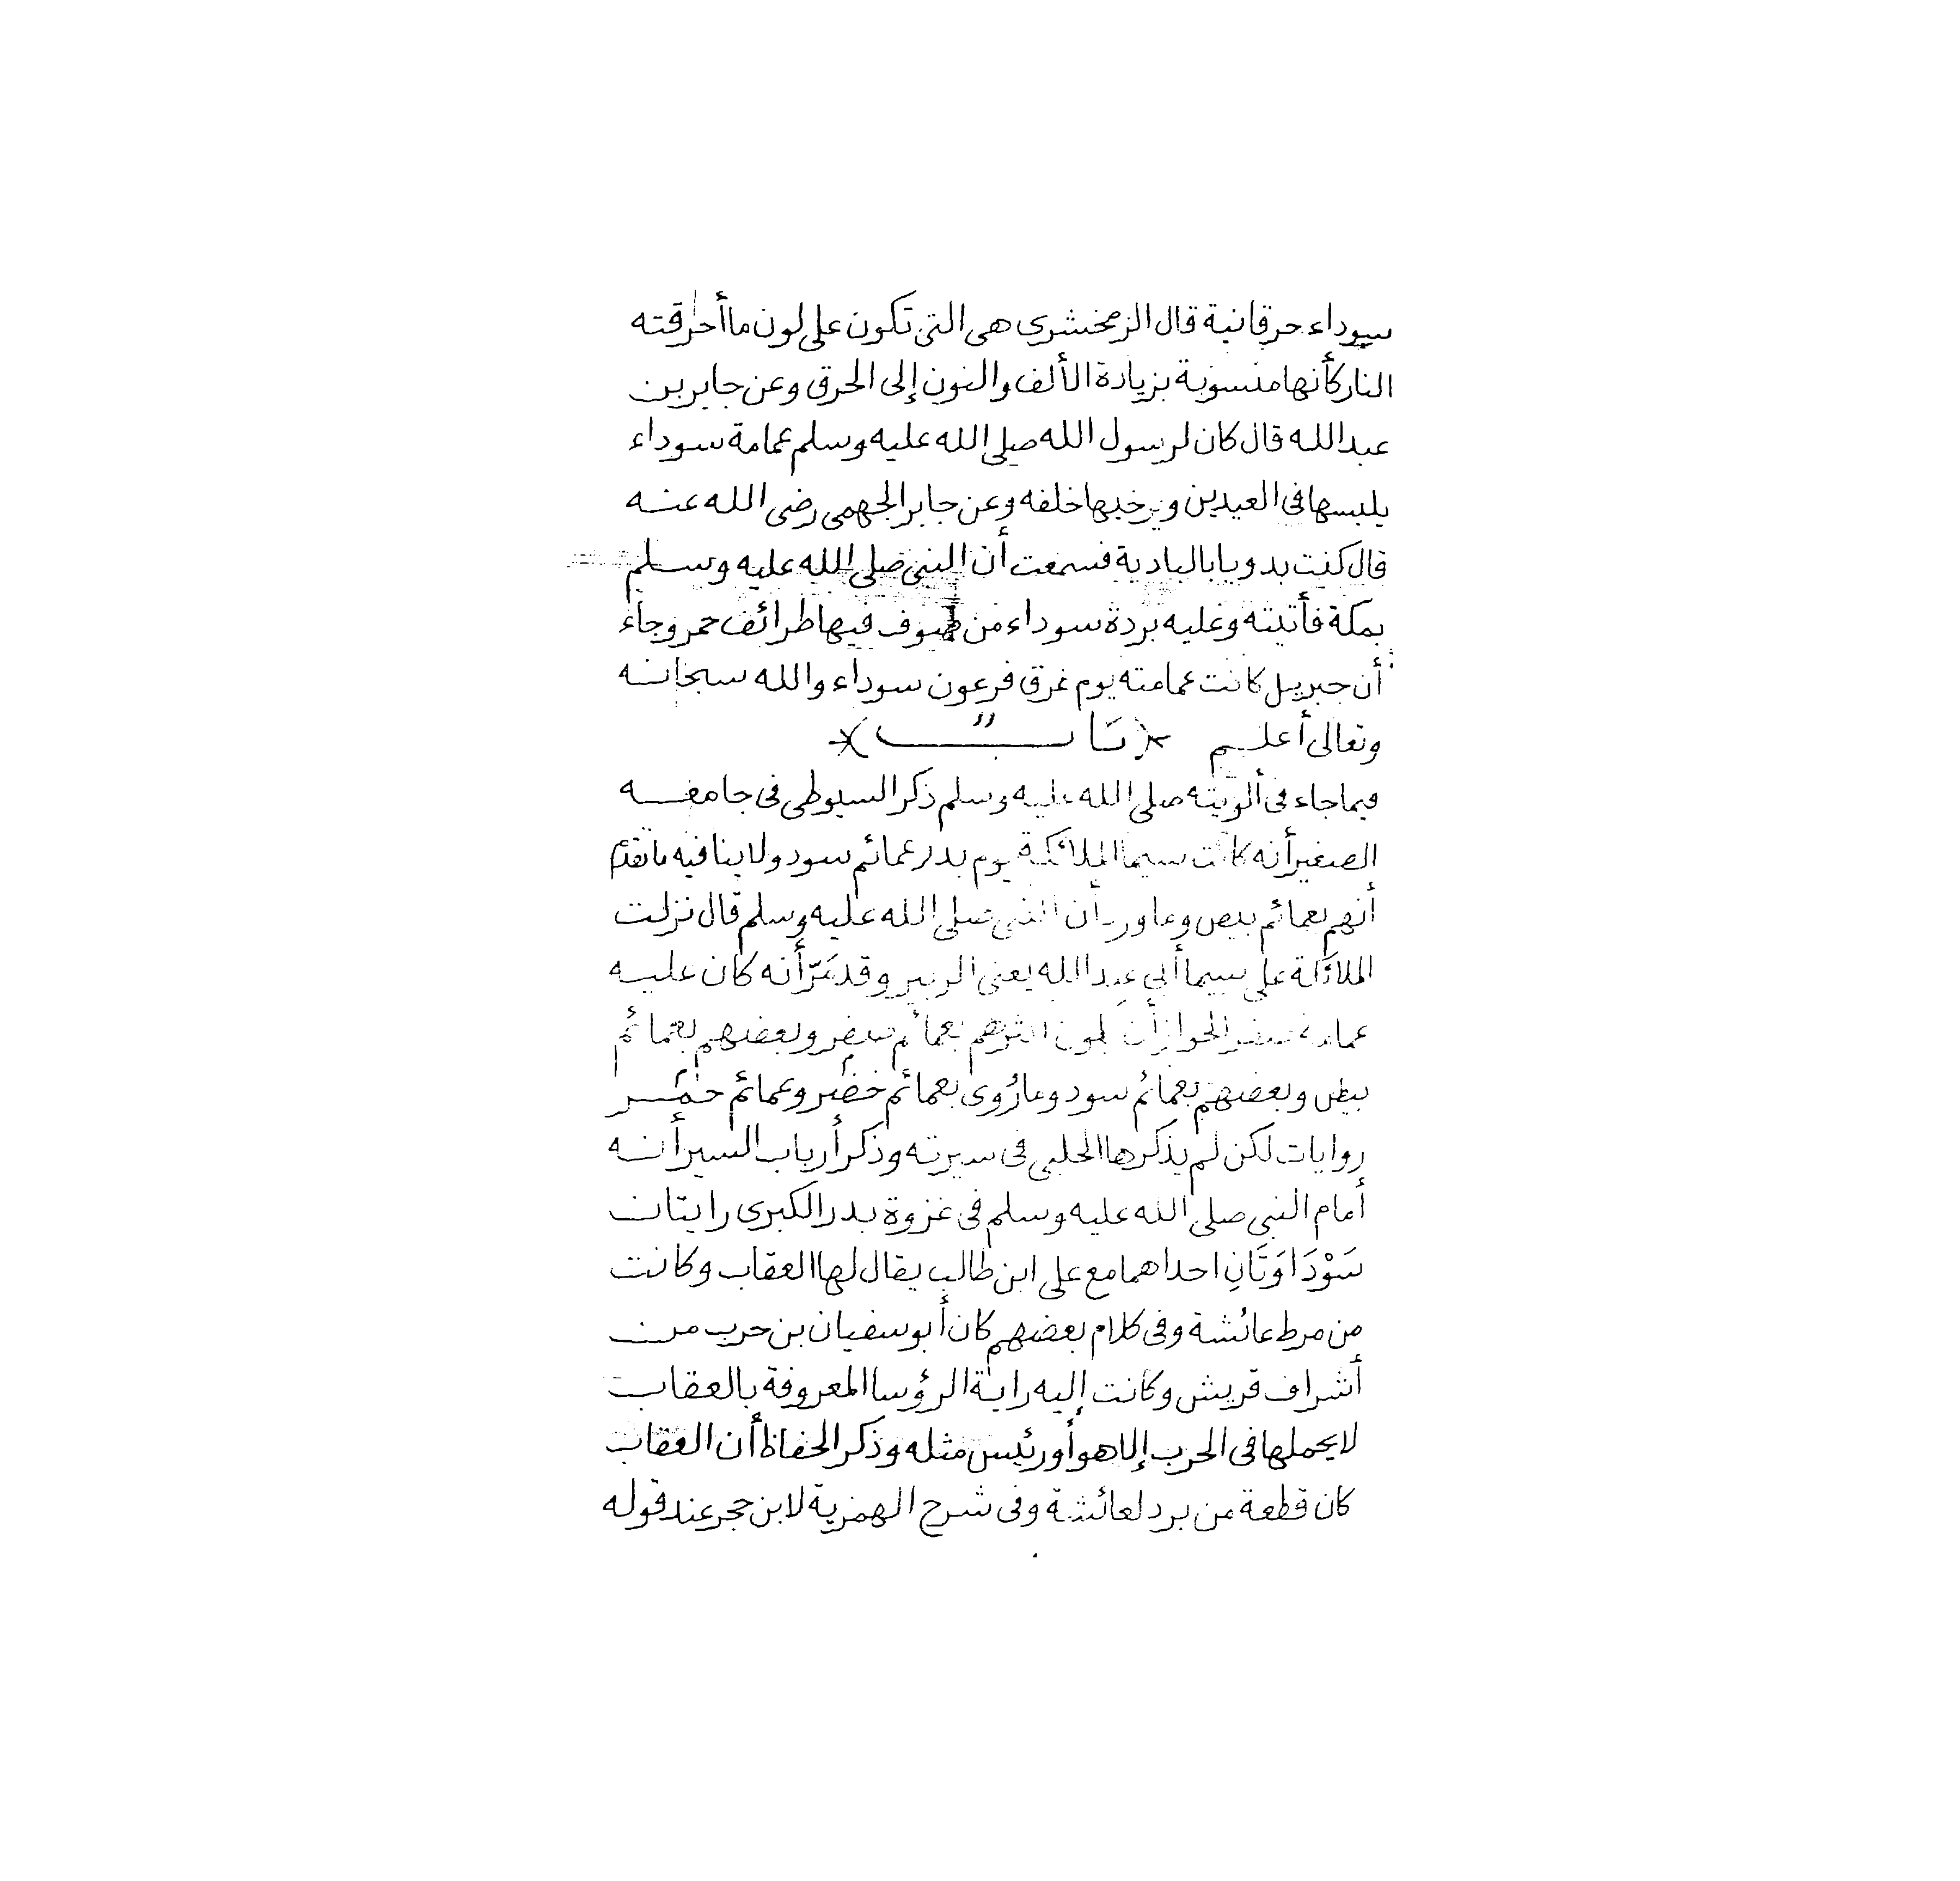 سوداء حرقانية قال الزمخشرى هى التى تكون على لون ما أحرقته
النار كأنها منسوبة بزيادة الألف والنون إلى الحرق وعن جابر بن
عبد الله قال كان لرسول الله صلى الله عليه وسلم عمامة سوداء
يلبسها فى العيدين ويرخيها خلفه وعن جابر الجهمى رضى الله عنه
قال كنت بدويا بالبادية فسمعت أن النبى صلى الله عليه وسلم
بمكة فأتيته وعليه بردة سوداء من صوف فيها طرائف حمر وجاء
أن جبريل كانت عمامته يوم غرق فرعون سوداء والله سبحانه
وتعالى أعلم ﴿باب﴾
فيما جاء فى ألويته صلى الله عليه وسلم ذكر السيوطى فى جامعه
الصغير أنه كانت سيما الملائكة يوم بدر عمائم سود ولا ينافيه ما تقدم
أنهم بعمائم بيض وما ورد أن النبى صلى الله عليه وسلم قال نزلت
الملائكة على سيما أبى عبد الله يعنى الزبير وقد مَرّ أنه كان عليه
عمامة صفر الجواز أن يكون أكثرهم بعمائم صفر وبعضهم بعمائم
بيض وبعضهم بعمائم سود وما رُوى بعمائم خضر وعمائم حمر
روايات لكن لم يذكرها الحلبى فى سيرته وذكر أرباب السير أنه
أمام النبى صلى الله عليه وسلم فى غزوة بدر الكبرى رايتان
سَوْدَاوَتَانِ احداهما مع على ابن طالب يقال لها العقاب وكانت
من مرط عائشة وفى كلام بعضهم كان أبو سفيان بن حرب من
أشراف قريش وكانت إليه راية الرؤسا المعروفة بالعقاب
لا يحملها فى الحرب إلا هو أو رئيس مثله وذكر الحفاظ أن العقاب
كان قطعة من برد لعائشة وفى شرح الهمزية لابن حجر عند قوله